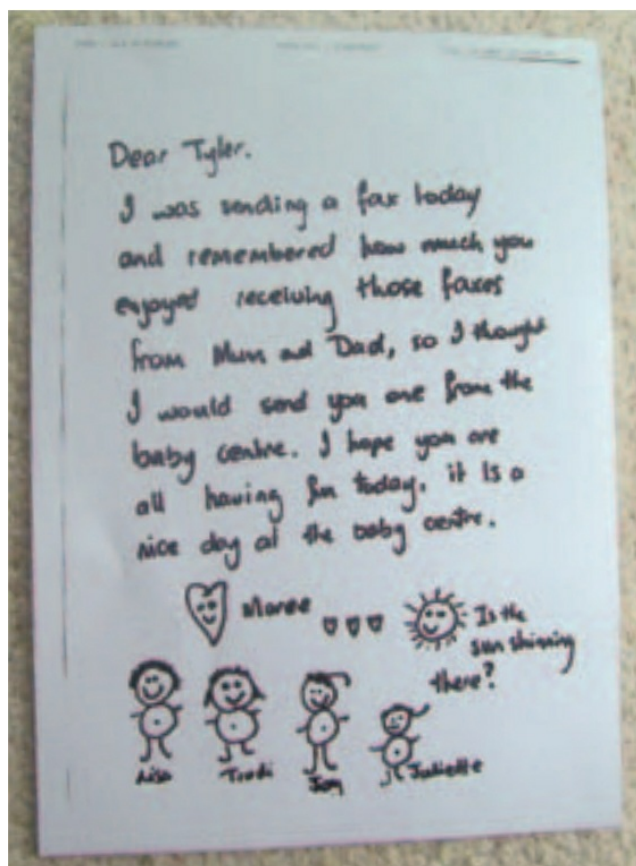 Dear Tyler.
I was sending a fax today
and remembered how much you
enjoyed receiving those faxes
from Mum and Dad, so I thought
I would send you one from the
baby centre. I hope you are
all having fun today. it is a
nice day at the baby centre.
Maree
Is the
sun shinning
there?
Lisa Trudi Juliette